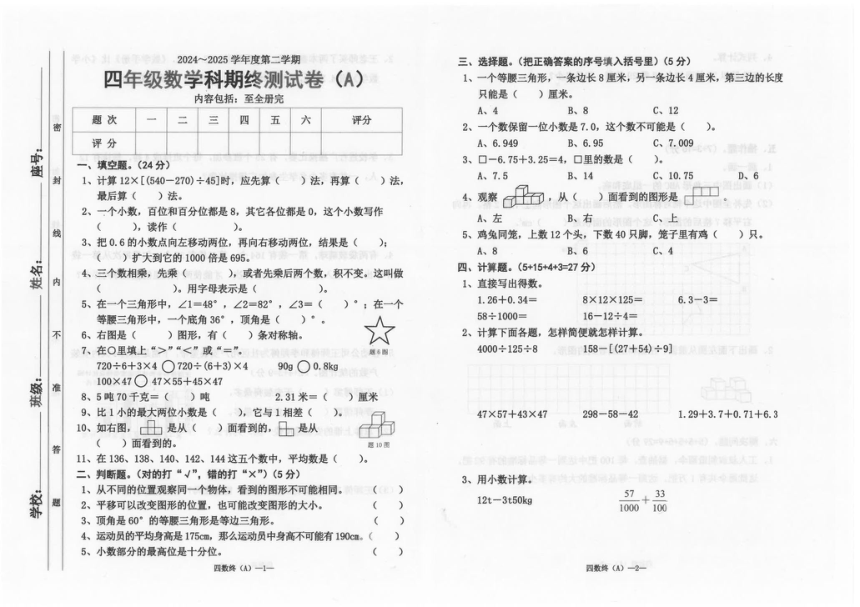 2024～2025 学年度第二学期
四年级数学科期终测试卷（A）
内容包括：至全册完
题 次 一 二 三 四 五 六 评分
评 分
座号：
姓名：
班级：
学校：
密
封
线
内
不
准
答
题
一、填空题。（24 分）
1、计算 12×[(540－270)÷45]时，应先算（ ）法，再算（ ）法，
最后算（ ）法。
2、一个小数，百位和百分位都是 8，其它各位都是 0，这个小数写作
（ ），读作（ ）。
3、把 0.6 的小数点向左移动两位，再向右移动两位，结果是（ ）；
（ ）扩大到它的 1000 倍是 695。
4、三个数相乘，先乘（ ），或者先乘后两个数，积不变。这叫做
（ ）。用字母表示是（ ）。
5、在一个三角形中，∠1=48°，∠2=82°，∠3=（ ）°；在一个
等腰三角形中，一个底角 36°，顶角是（ ）°。
6、右图是（ ）图形，有（ ）条对称轴。
题 6 图
7、在○里填上“>”“<”或“=”。
720÷6÷3×4 ○ 720÷(6÷3)×4 90g ○ 0.8kg
100×47 ○ 47×55+45×47
8、5 吨 70 千克=（ ）吨 2.31 米=（ ）厘米
9、比 1 小的最大两位小数是（ ），它与 1 相差（ ）。
10、如右图， 是从（ ）面看到的， 是从
（ ）面看到的。
题 10 图
11、在 136、138、140、142、144 这五个数中，平均数是（ ）。
二、判断题。（对的打“√”，错的打“×”）（5 分）
1、从不同的位置观察同一个物体，看到的图形不可能相同。 （ ）
2、平移可以改变图形的位置，也可能改变图形的大小。 （ ）
3、顶角是 60°的等腰三角形是等边三角形。 （ ）
4、运动员的平均身高是 175cm，那么运动员中身高不可能有 190cm。（ ）
5、小数部分的最高位是十分位。 （ ）
四数终（A）—1—
三、选择题。（把正确答案的序号填入括号里）（5 分）
1、一个等腰三角形，一条边长 8 厘米，另一条边长 4 厘米，第三边的长度
只能是（ ）厘米。
A、4 B、8 C、12
2、一个数保留一位小数是 7.0，这个数不可能是（ ）。
A、6.949 B、6.95 C、7.009
3、□－6.75+3.25=4，□里的数是（ ）。
A、7.5 B、14 C、10.75 D、6
4、观察 ，从（ ）面看到的图形是 。
A、左 B、右 C、上
5、鸡兔同笼，上数 12 个头，下数 40 只脚，笼子里有鸡（ ）只。
A、8 B、6 C、4
四、计算题。（5+15+4+3=27 分）
1、直接写出得数。
1.26+0.34= 8×12×125= 6.3－3=
58÷1000= 16－12÷4=
2、计算下面各题，怎样简便就怎样计算。
4000÷125÷8 158－[(27+54)÷9]
47×57+43×47 298－58－42 1.29+3.7+0.71+6.3
3、用小数计算。
12t－3t50kg 57/1000 + 33/100
四数终（A）—2—